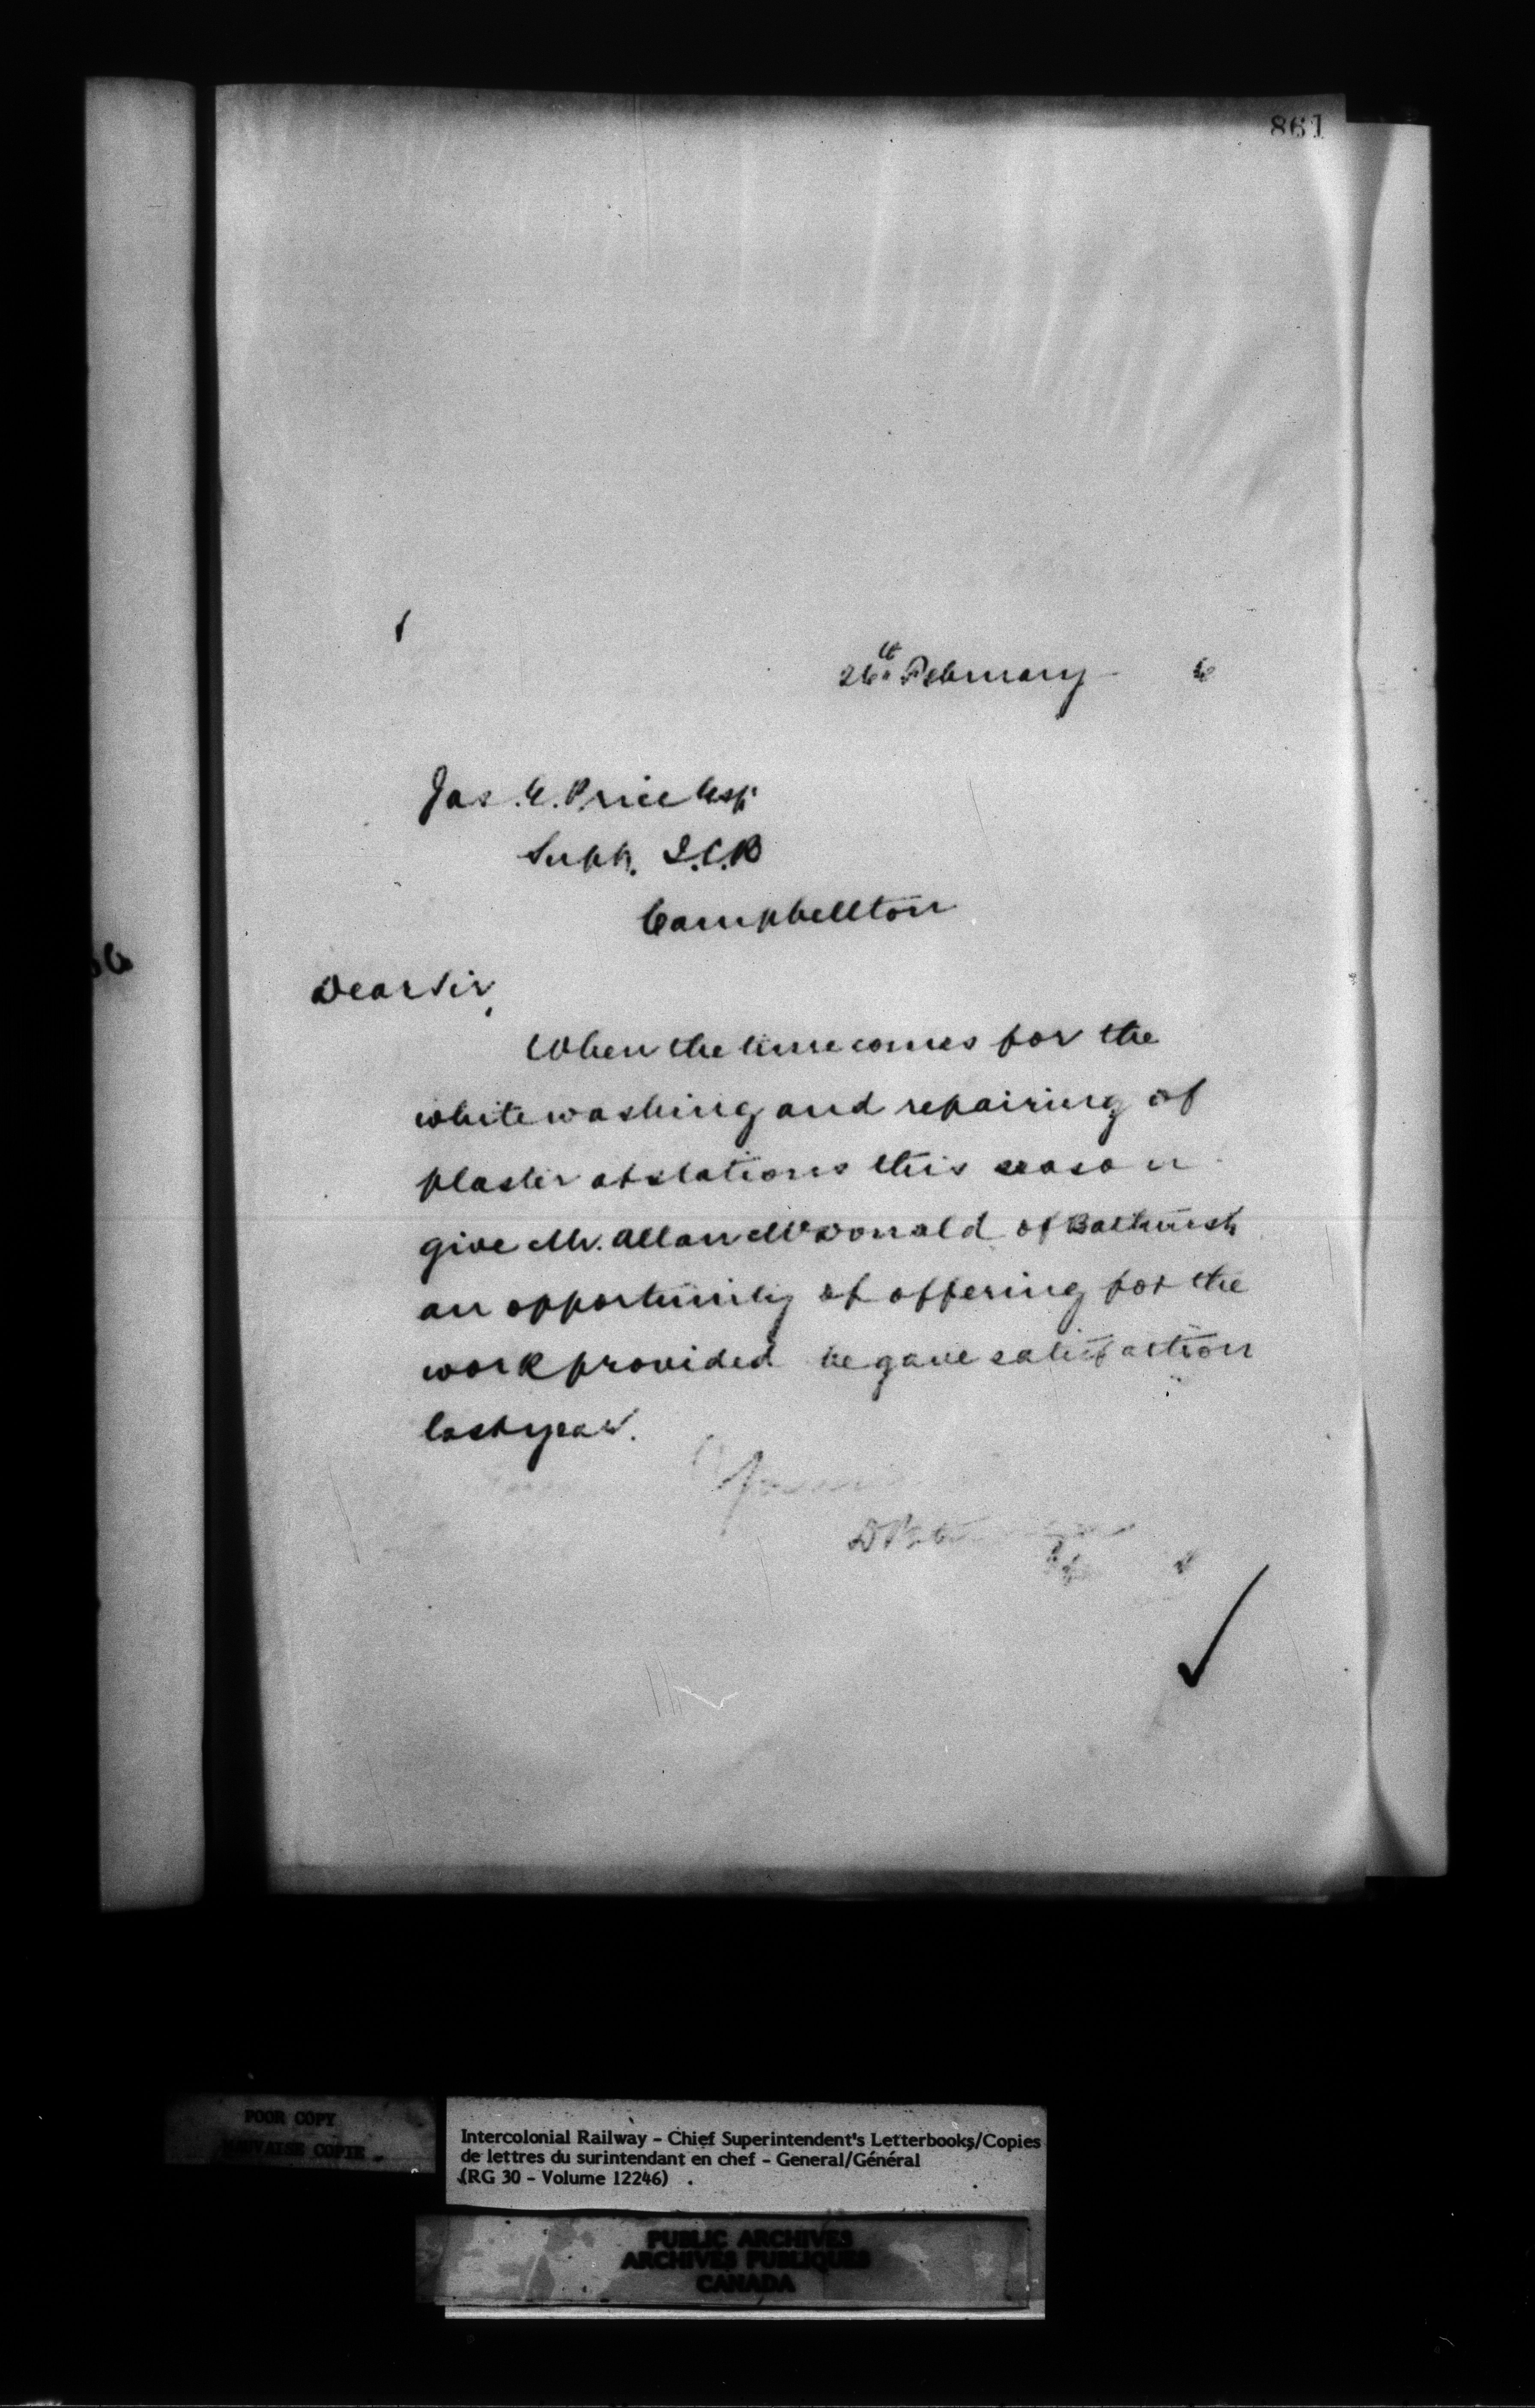 861
26th February 6
Jas. E. Price Esq.
Supt. I.C.R
Campbellton
Dear Sir,
When the time comes for the
whitewashing and repairing of
plaster at stations this season
give Mr. Allan McDonald of Bathurst
an opportunity of offering for the
work provided he gave satisfaction
last year.
Yours
POOR COPY
MAUVAISE COPIE
Intercolonial Railway - Chief Superintendent's Letterbooks/Copies
de lettres du surintendant en chef - General/Général
(RG 30 - Volume 12246)
PUBLIC ARCHIVES
ARCHIVES PUBLIQUES
CANADA